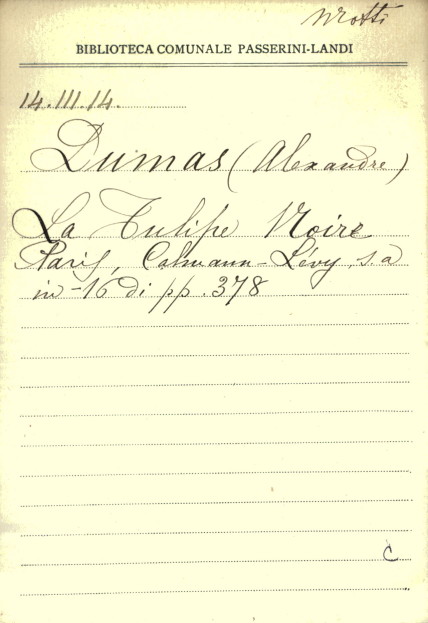 BIBLIOTECA COMUNALE PASSERINI-LANDI
14.III.14.
Dumas (Alexandre)
La Tulipe Noire
Paris, Calmann-Lévy, s.a
in-16 di pp. 378
C